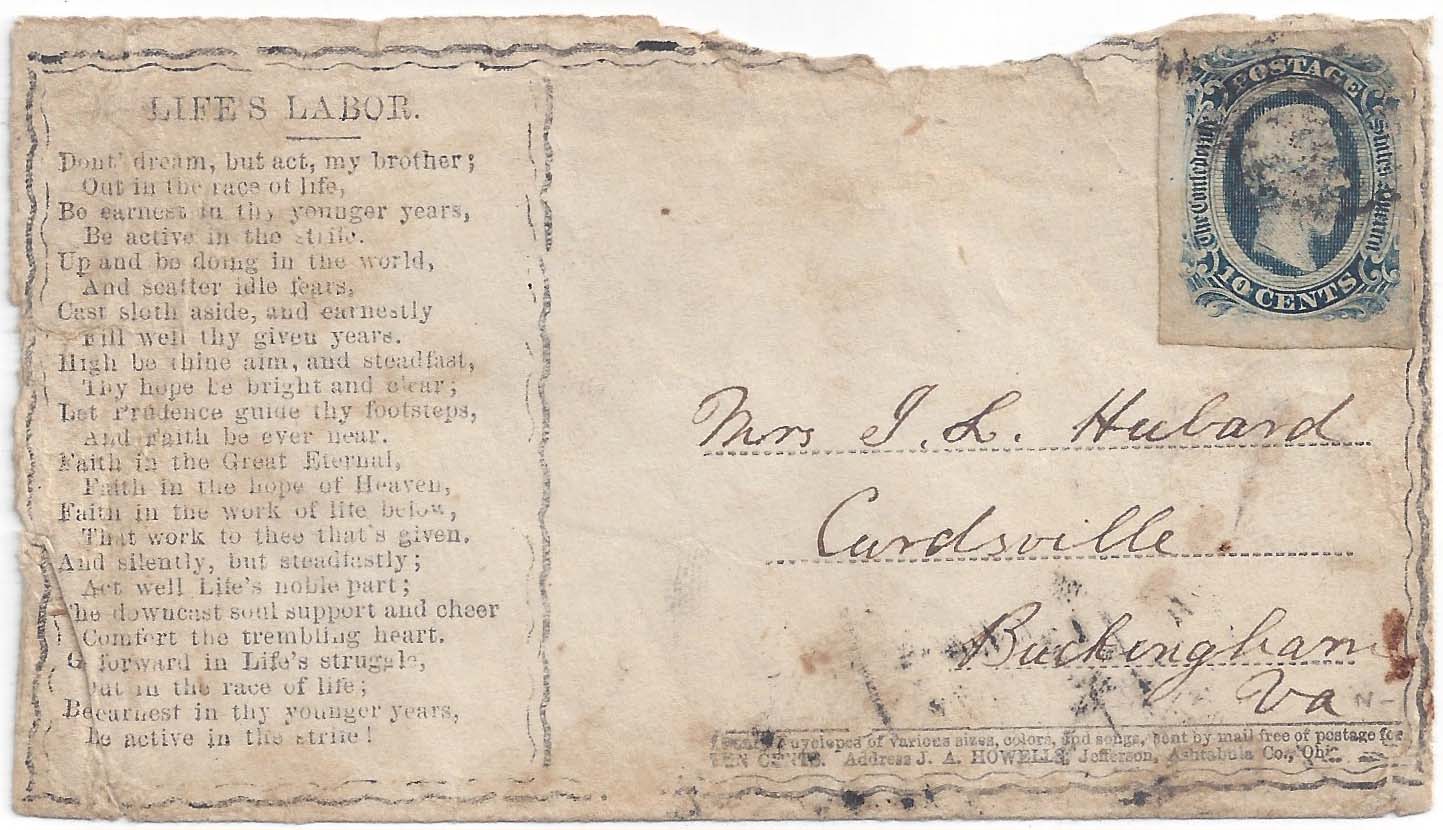 LIFE'S LABOR.
Dont' dream, but act, my brother;
Out in the race of life,
Be earnest in thy younger years,
Be active in the strife.
Up and be doing in the world,
And scatter idle fears,
Cast sloth aside, and earnestly
Fill well thy given years.
High be thine aim, and steadfast,
Thy hope be bright and clear;
Let Prudence guide thy footsteps,
And Faith be ever near.
Faith in the Great Eternal,
Faith in the hope of Heaven,
Faith in the work of life below,
That work to thee that's given.
And silently, but steadfastly;
Act well Life's noble part;
The downcast soul support and cheer
Comfort the trembling heart.
Go forward in Life's struggle,
Out in the race of life;
Be earnest in thy younger years,
Be active in the strife!
POSTAGE
The Confederate States of America
10 CENTS
Mrs I. L. Hubard
Curdsville
Buckingham
Va
N-
Envelopes of various sizes, colors, and songs, sent by mail free of postage for
TEN CENTS. Address J. A. HOWELLS, Jefferson, Ashtabula Co., Ohio.